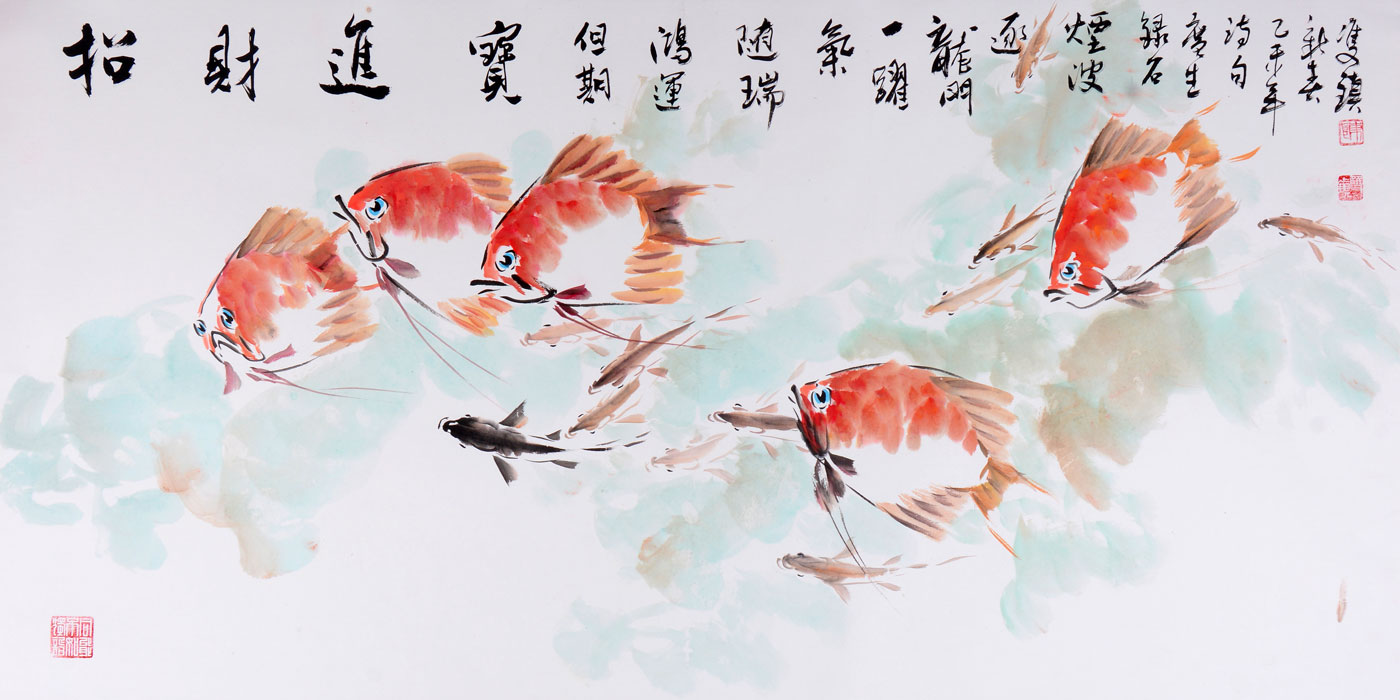 招
財
進
寶
但期
鴻運
隨瑞
氣
一躍
龍門
逐
煙波
錄石
詩句
乙未年
新春